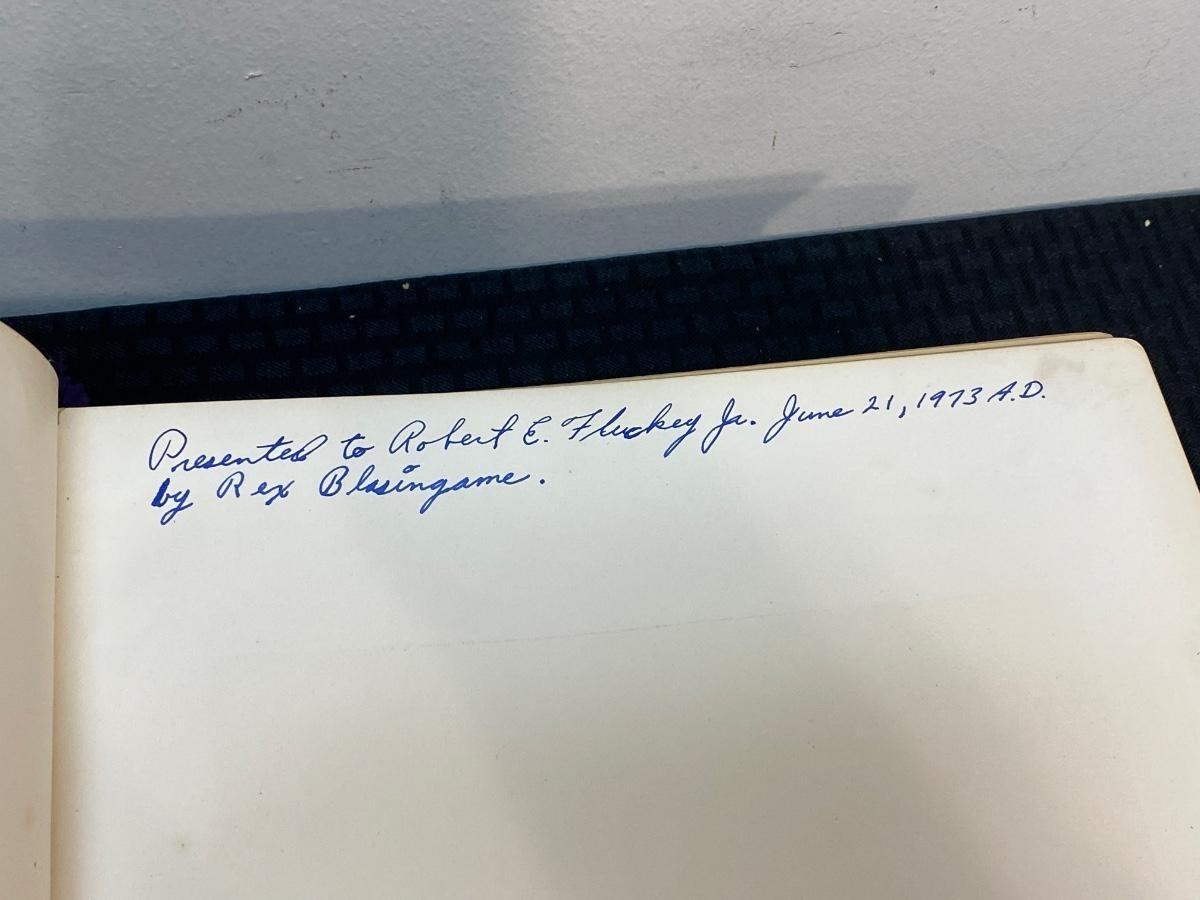 Presented to Robert E. Fluckey Jr. June 21, 1973 A.D.
by Rex Blasingame.